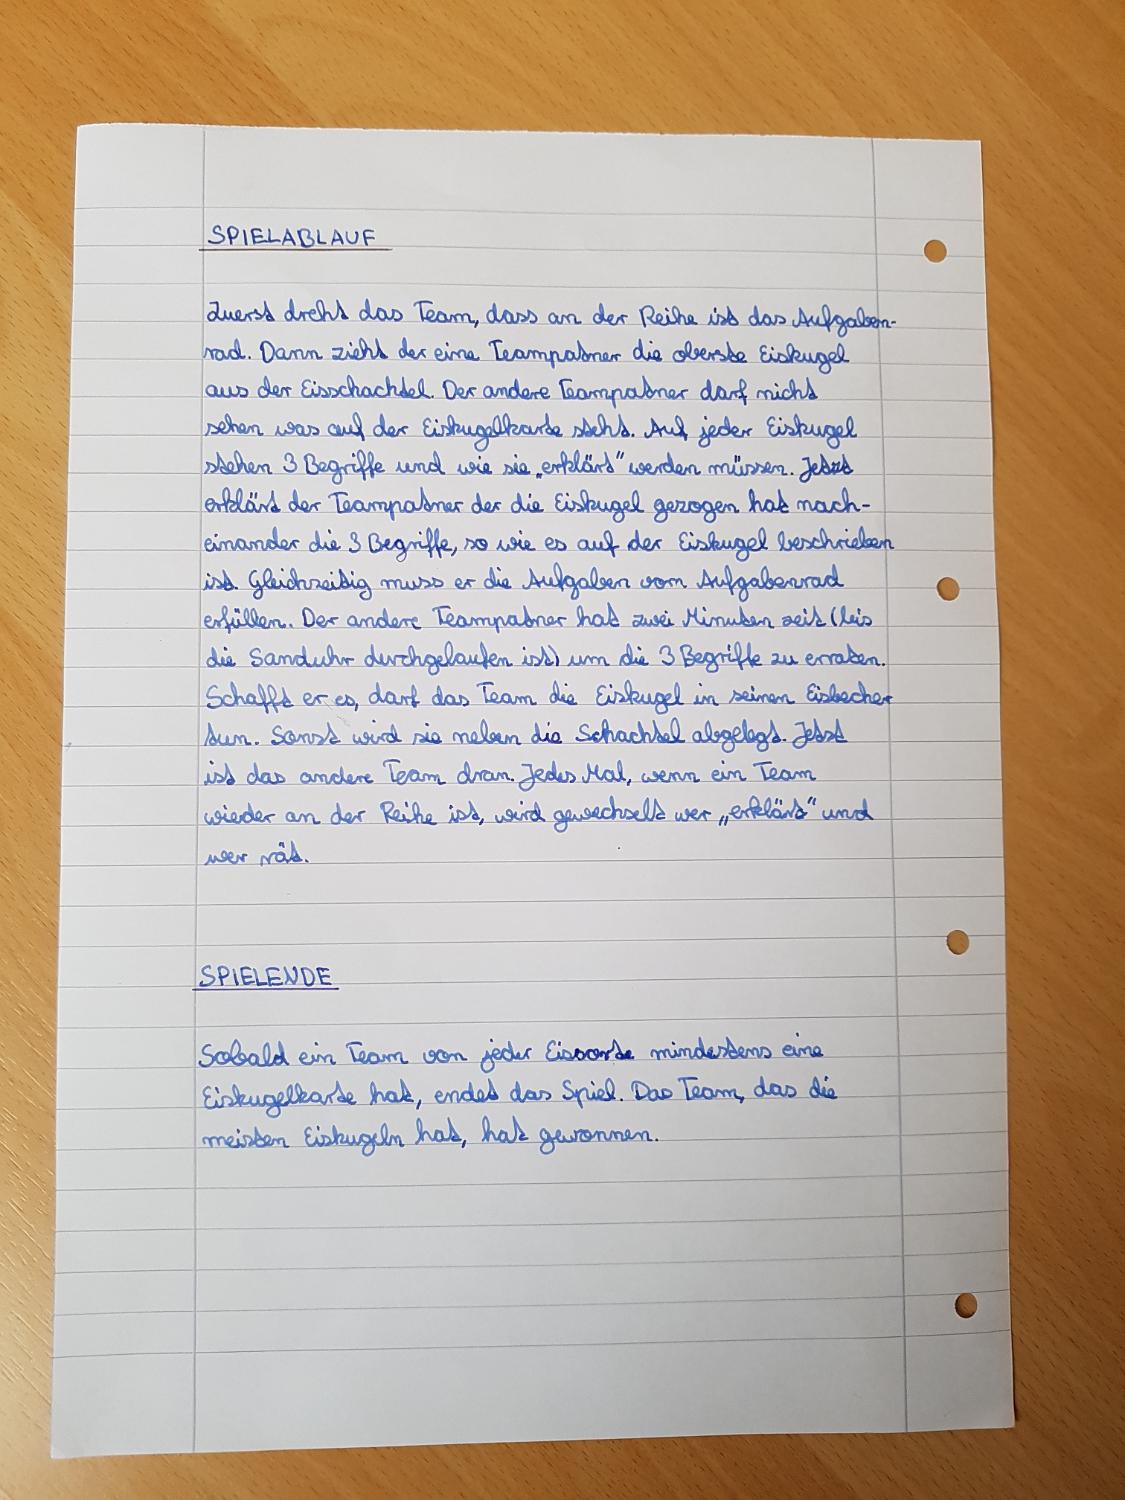 SPIELABLAUF
Zuerst dreht das Team, dass an der Reihe ist das Aufgaben-
rad. Dann zieht der eine Teampatner die oberste Eiskugel
aus der Eisschachtel. Der andere Teampatner darf nicht
sehen was auf der Eiskugelkarte steht. Auf jeder Eiskugel
stehen 3 Begriffe und wie sie „erklärt" werden müssen. Jetzt
erklärt der Teampatner der die Eiskugel gezogen hat nach-
einander die 3 Begriffe, so wie es auf der Eiskugel beschrieben
ist. Gleichzeitig muss er die Aufgaben vom Aufgabenrad
erfüllen. Der andere Teampatner hat zwei Minuten zeit (bis
die Sanduhr durchgelaufen ist) um die 3 Begriffe zu erraten.
Schafft er es, darf das Team die Eiskugel in seinen Eisbecher
tun. Sonst wird sie neben die Schachtel abgelegt. Jetzt
ist das andere Team dran. Jedes Mal, wenn ein Team
wieder an der Reihe ist, wird gewechselt wer „erklärt" und
wer rät.
SPIELENDE
Sobald ein Team von jeder Eissorte mindestens eine
Eiskugelkarte hat, endet das Spiel. Das Team, das die
meisten Eiskugeln hat, hat gewonnen.